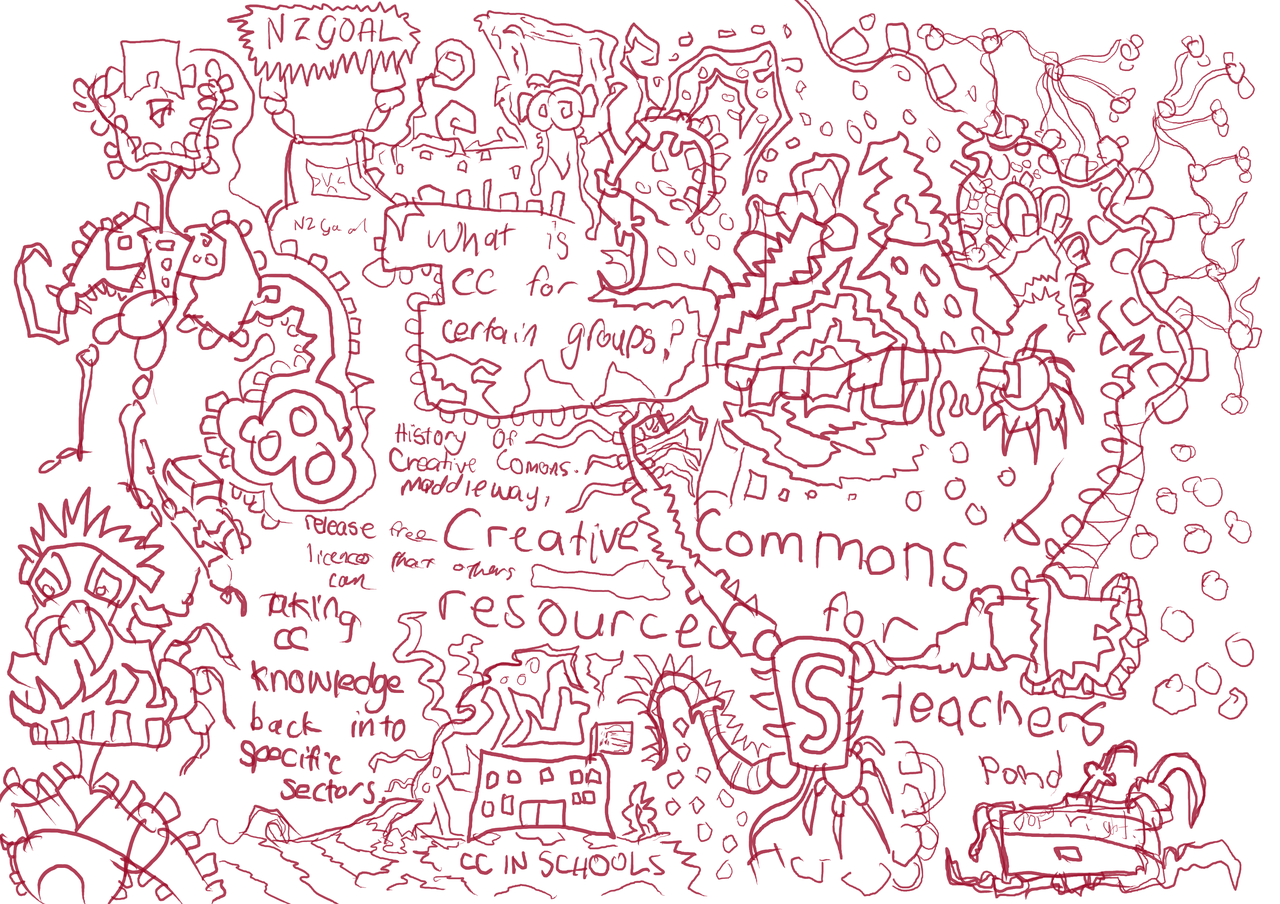 NZGOAL
NZGoal
What is
CC for
certain groups?
History Of
Creative Comons.
maddieway,
release free
licences that others
can
Creative Commons
resourced for
teachers
Taking
CC
knowledge
back into
specific
sectors.
S
CC IN SCHOOLS
Pond